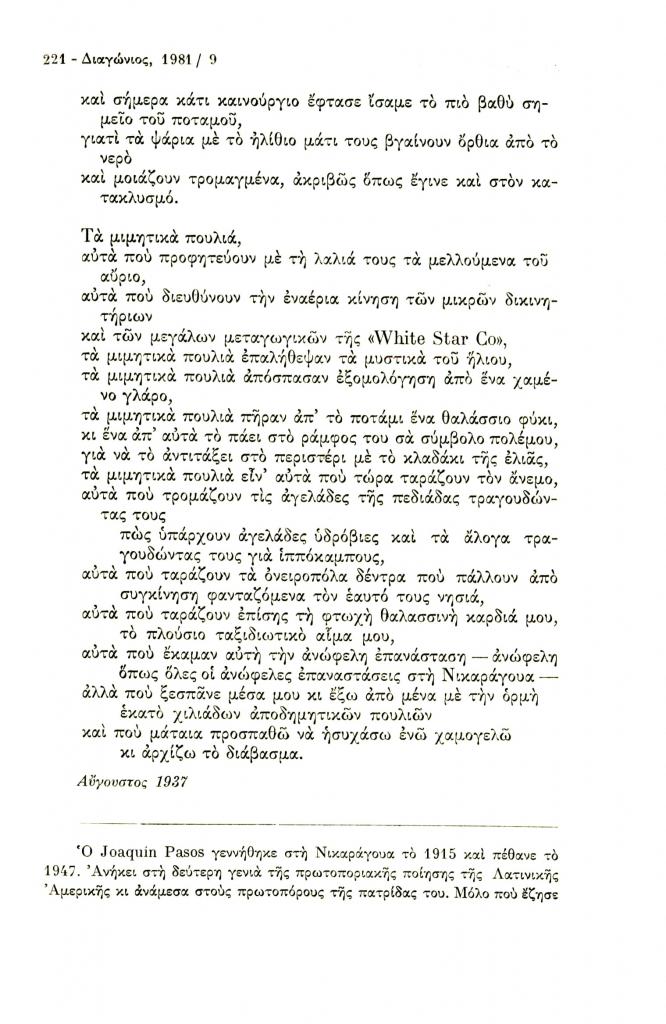 221 - Διαγώνιος, 1981 / 9
καὶ σήμερα κάτι καινούργιο ἔφτασε ἴσαμε τὸ πιὸ βαθὺ ση-
μεῖο τοῦ ποταμοῦ,
γιατὶ τὰ ψάρια μὲ τὸ ἠλίθιο μάτι τους βγαίνουν ὄρθια ἀπὸ τὸ
νερὸ
καὶ μοιάζουν τρομαγμένα, ἀκριβῶς ὅπως ἔγινε καὶ στὸν κα-
τακλυσμό.
Τὰ μιμητικὰ πουλιά,
αὐτὰ ποὺ προφητεύουν μὲ τὴ λαλιά τους τὰ μελλούμενα τοῦ
αὔριο,
αὐτὰ ποὺ διευθύνουν τὴν ἐναέρια κίνηση τῶν μικρῶν δικινη-
τήριων
καὶ τῶν μεγάλων μεταγωγικῶν τῆς «White Star Co»,
τὰ μιμητικὰ πουλιὰ ἐπαλήθεψαν τὰ μυστικὰ τοῦ ἥλιου,
τὰ μιμητικὰ πουλιὰ ἀπόσπασαν ἐξομολόγηση ἀπὸ ἕνα χαμέ-
νο γλάρο,
τὰ μιμητικὰ πουλιὰ πῆραν ἀπ' τὸ ποτάμι ἕνα θαλάσσιο φύκι,
κι ἕνα ἀπ' αὐτὰ τὸ πάει στὸ ράμφος του σὰ σύμβολο πολέμου,
γιὰ νὰ τὸ ἀντιτάξει στὸ περιστέρι μὲ τὸ κλαδάκι τῆς ἐλιᾶς,
τὰ μιμητικὰ πουλιὰ εἶν' αὐτὰ ποὺ τώρα ταράζουν τὸν ἄνεμο,
αὐτὰ ποὺ τρομάζουν τὶς ἀγελάδες τῆς πεδιάδας τραγουδών-
τας τους
πὼς ὑπάρχουν ἀγελάδες ὑδρόβιες καὶ τὰ ἄλογα τρα-
γουδώντας τους γιὰ ἱππόκαμπους,
αὐτὰ ποὺ ταράζουν τὰ ὀνειροπόλα δέντρα ποὺ πάλλουν ἀπὸ
συγκίνηση φανταζόμενα τὸν ἑαυτό τους νησιά,
αὐτὰ ποὺ ταράζουν ἐπίσης τὴ φτωχὴ θαλασσινὴ καρδιά μου,
τὸ πλούσιο ταξιδιωτικὸ αἷμα μου,
αὐτὰ ποὺ ἔκαμαν αὐτὴ τὴν ἀνώφελη ἐπανάσταση — ἀνώφελη
ὅπως ὅλες οἱ ἀνώφελες ἐπαναστάσεις στὴ Νικαράγουα —
ἀλλὰ ποὺ ξεσπᾶνε μέσα μου κι ἔξω ἀπὸ μένα μὲ τὴν ὁρμὴ
ἑκατὸ χιλιάδων ἀποδημητικῶν πουλιῶν
καὶ ποὺ μάταια προσπαθῶ νὰ ἡσυχάσω ἐνῶ χαμογελῶ
κι ἀρχίζω τὸ διάβασμα.
Αὔγουστος 1937
Ὁ Joaquin Pasos γεννήθηκε στὴ Νικαράγουα τὸ 1915 καὶ πέθανε τὸ
1947. Ἀνήκει στὴ δεύτερη γενιὰ τῆς πρωτοποριακῆς ποίησης τῆς Λατινικῆς
Ἀμερικῆς κι ἀνάμεσα στοὺς πρωτοπόρους τῆς πατρίδας του. Μόλο ποὺ ἔζησε